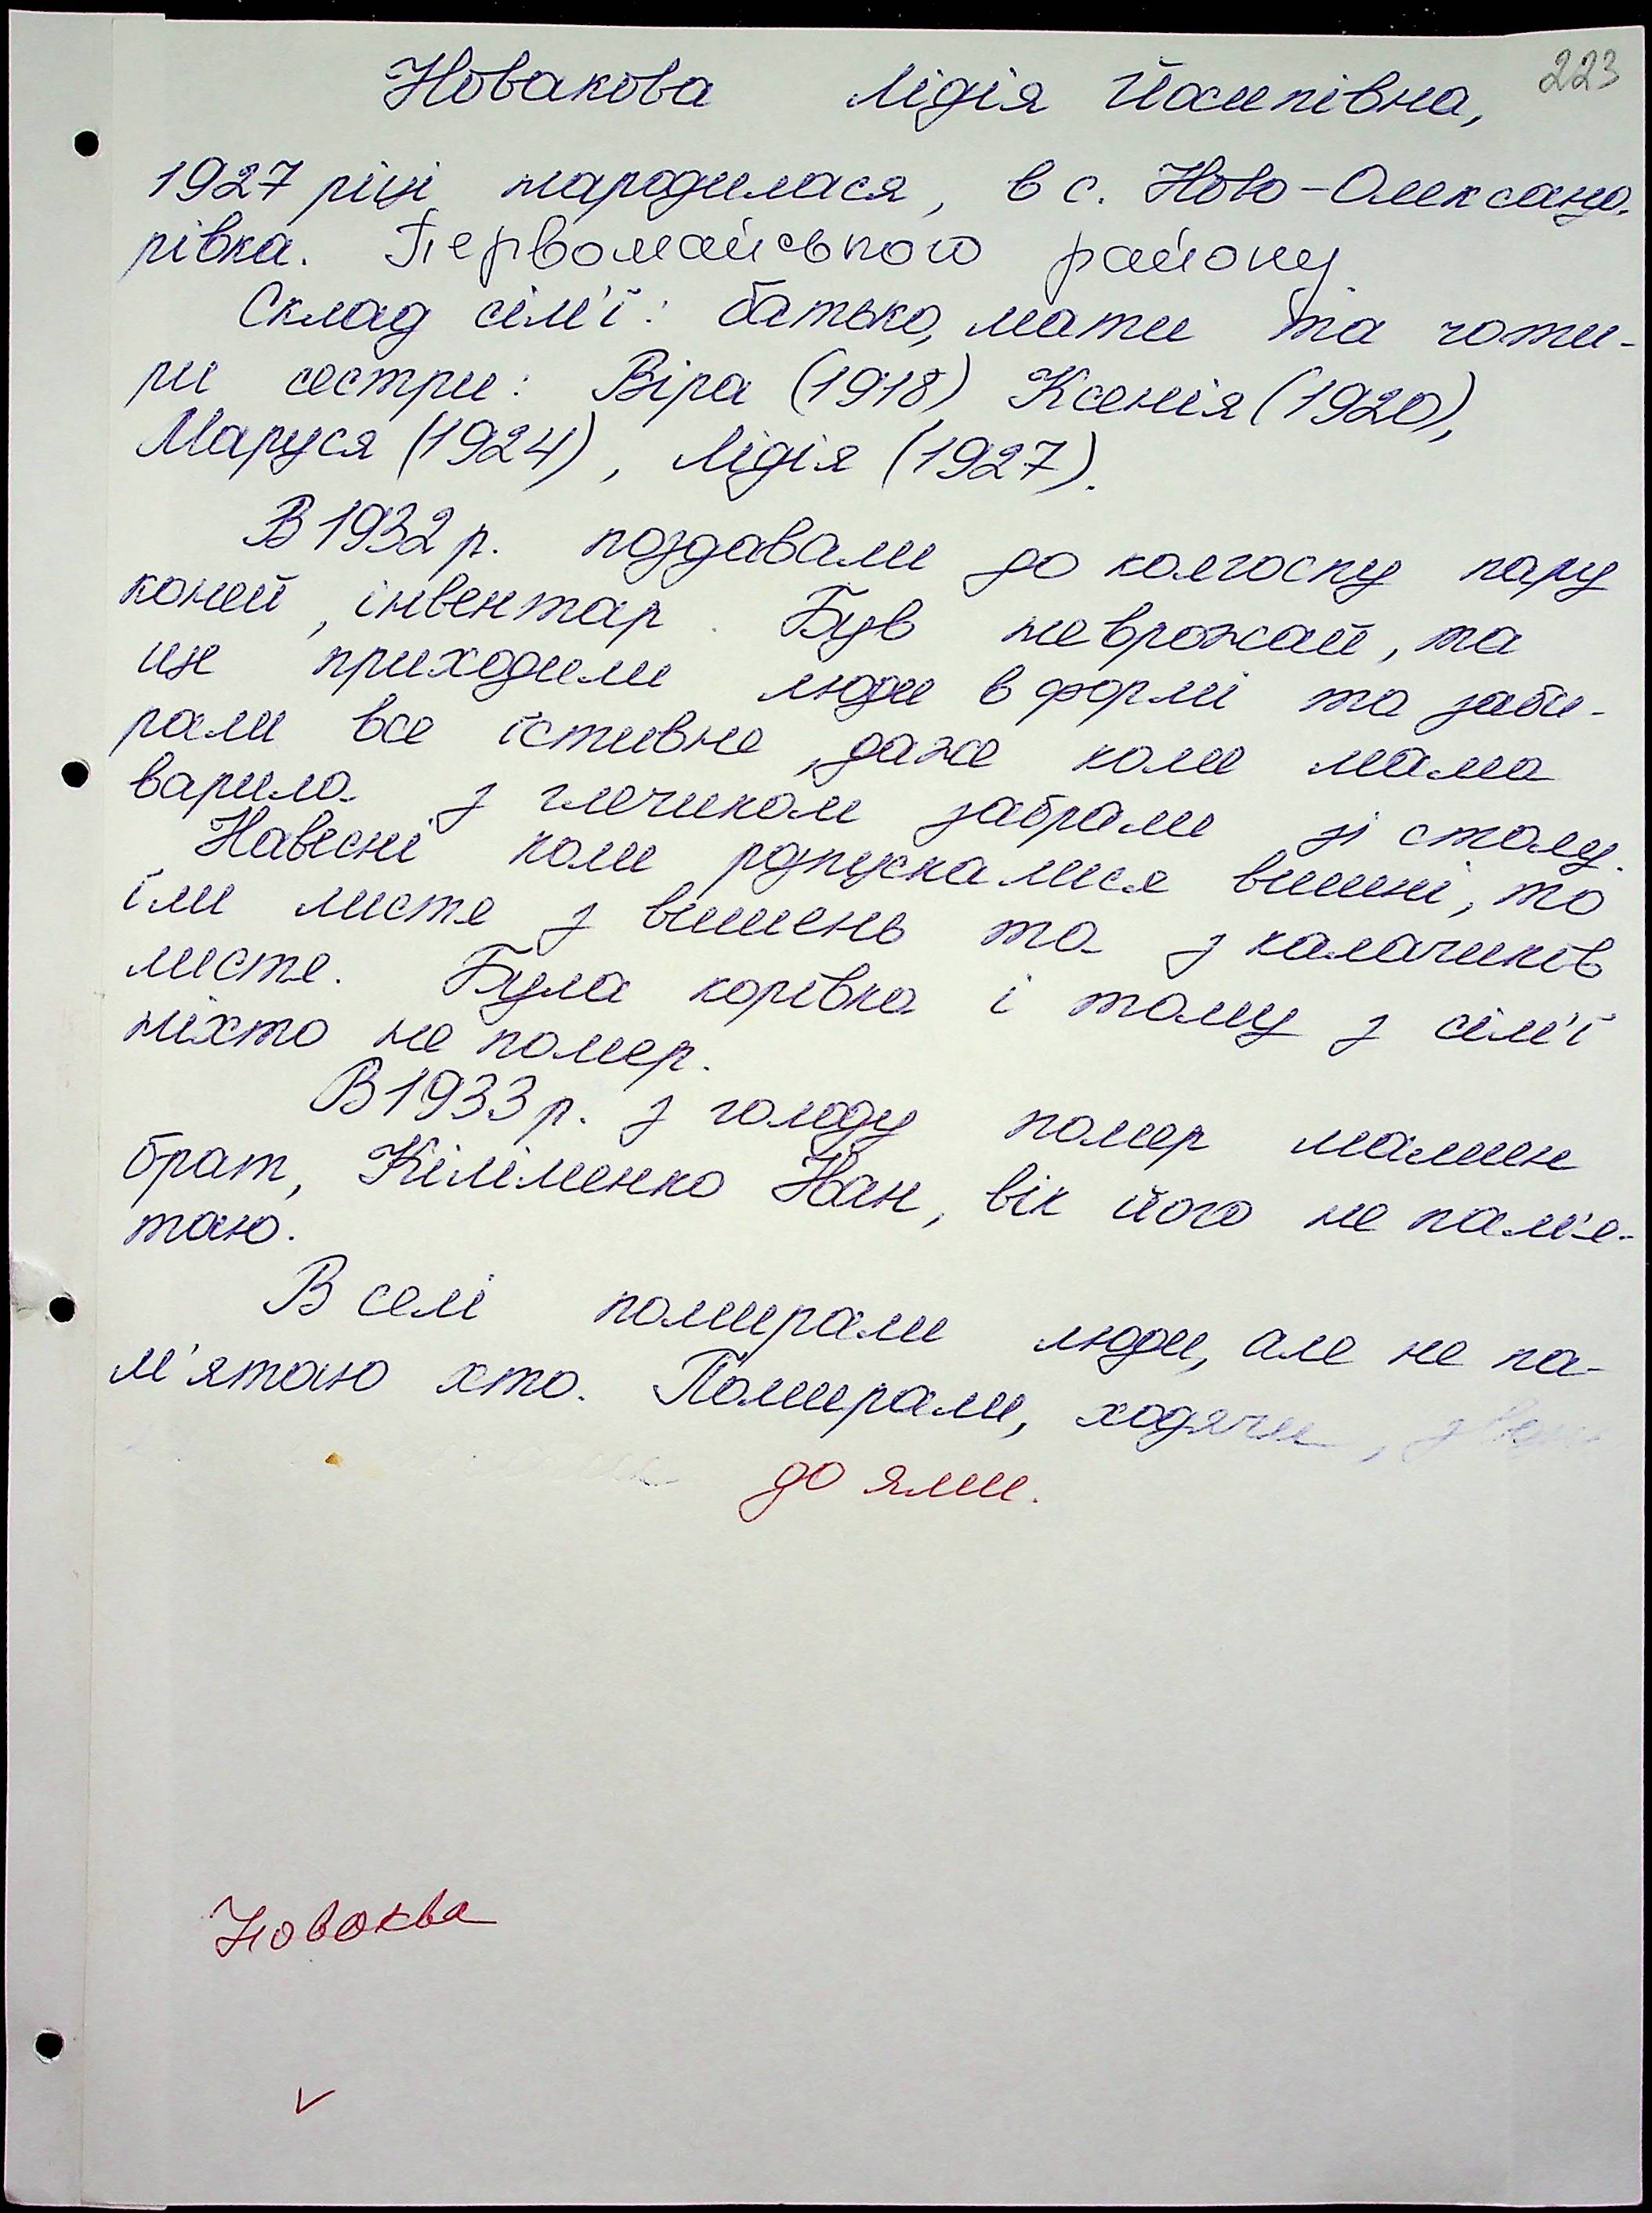 223
Новакова Лідія Йосипівна,
1927 році народилася, в с. Ново-Олександ-
рівка. Первомайського району.
Склад сім'ї: батько, мати та чоти-
ри сестри: Віра (1918) Ксенія (1920),
Маруся (1924), Лідія (1927).
В 1932 р. поздавали до колгоспу пару
коней, інвентар. Був неврожай, та
ще приходили люди в формі та заби-
рали все їстивне, даже коли мама
варила з глечиком забрали зі столу.
Навесні коли розпускалися вишні, то
їли листя з вишень та з калачиків
листя. Була корівка і тому з сім'ї
ніхто не помер.
В 1933 р. з голоду помер мамин
брат, Кіліменко Іван, вік його не пам'я-
таю.
В селі помирали люди, але не па-
м'ятаю хто. Помирали, ходячи,
до ями.
Новаква